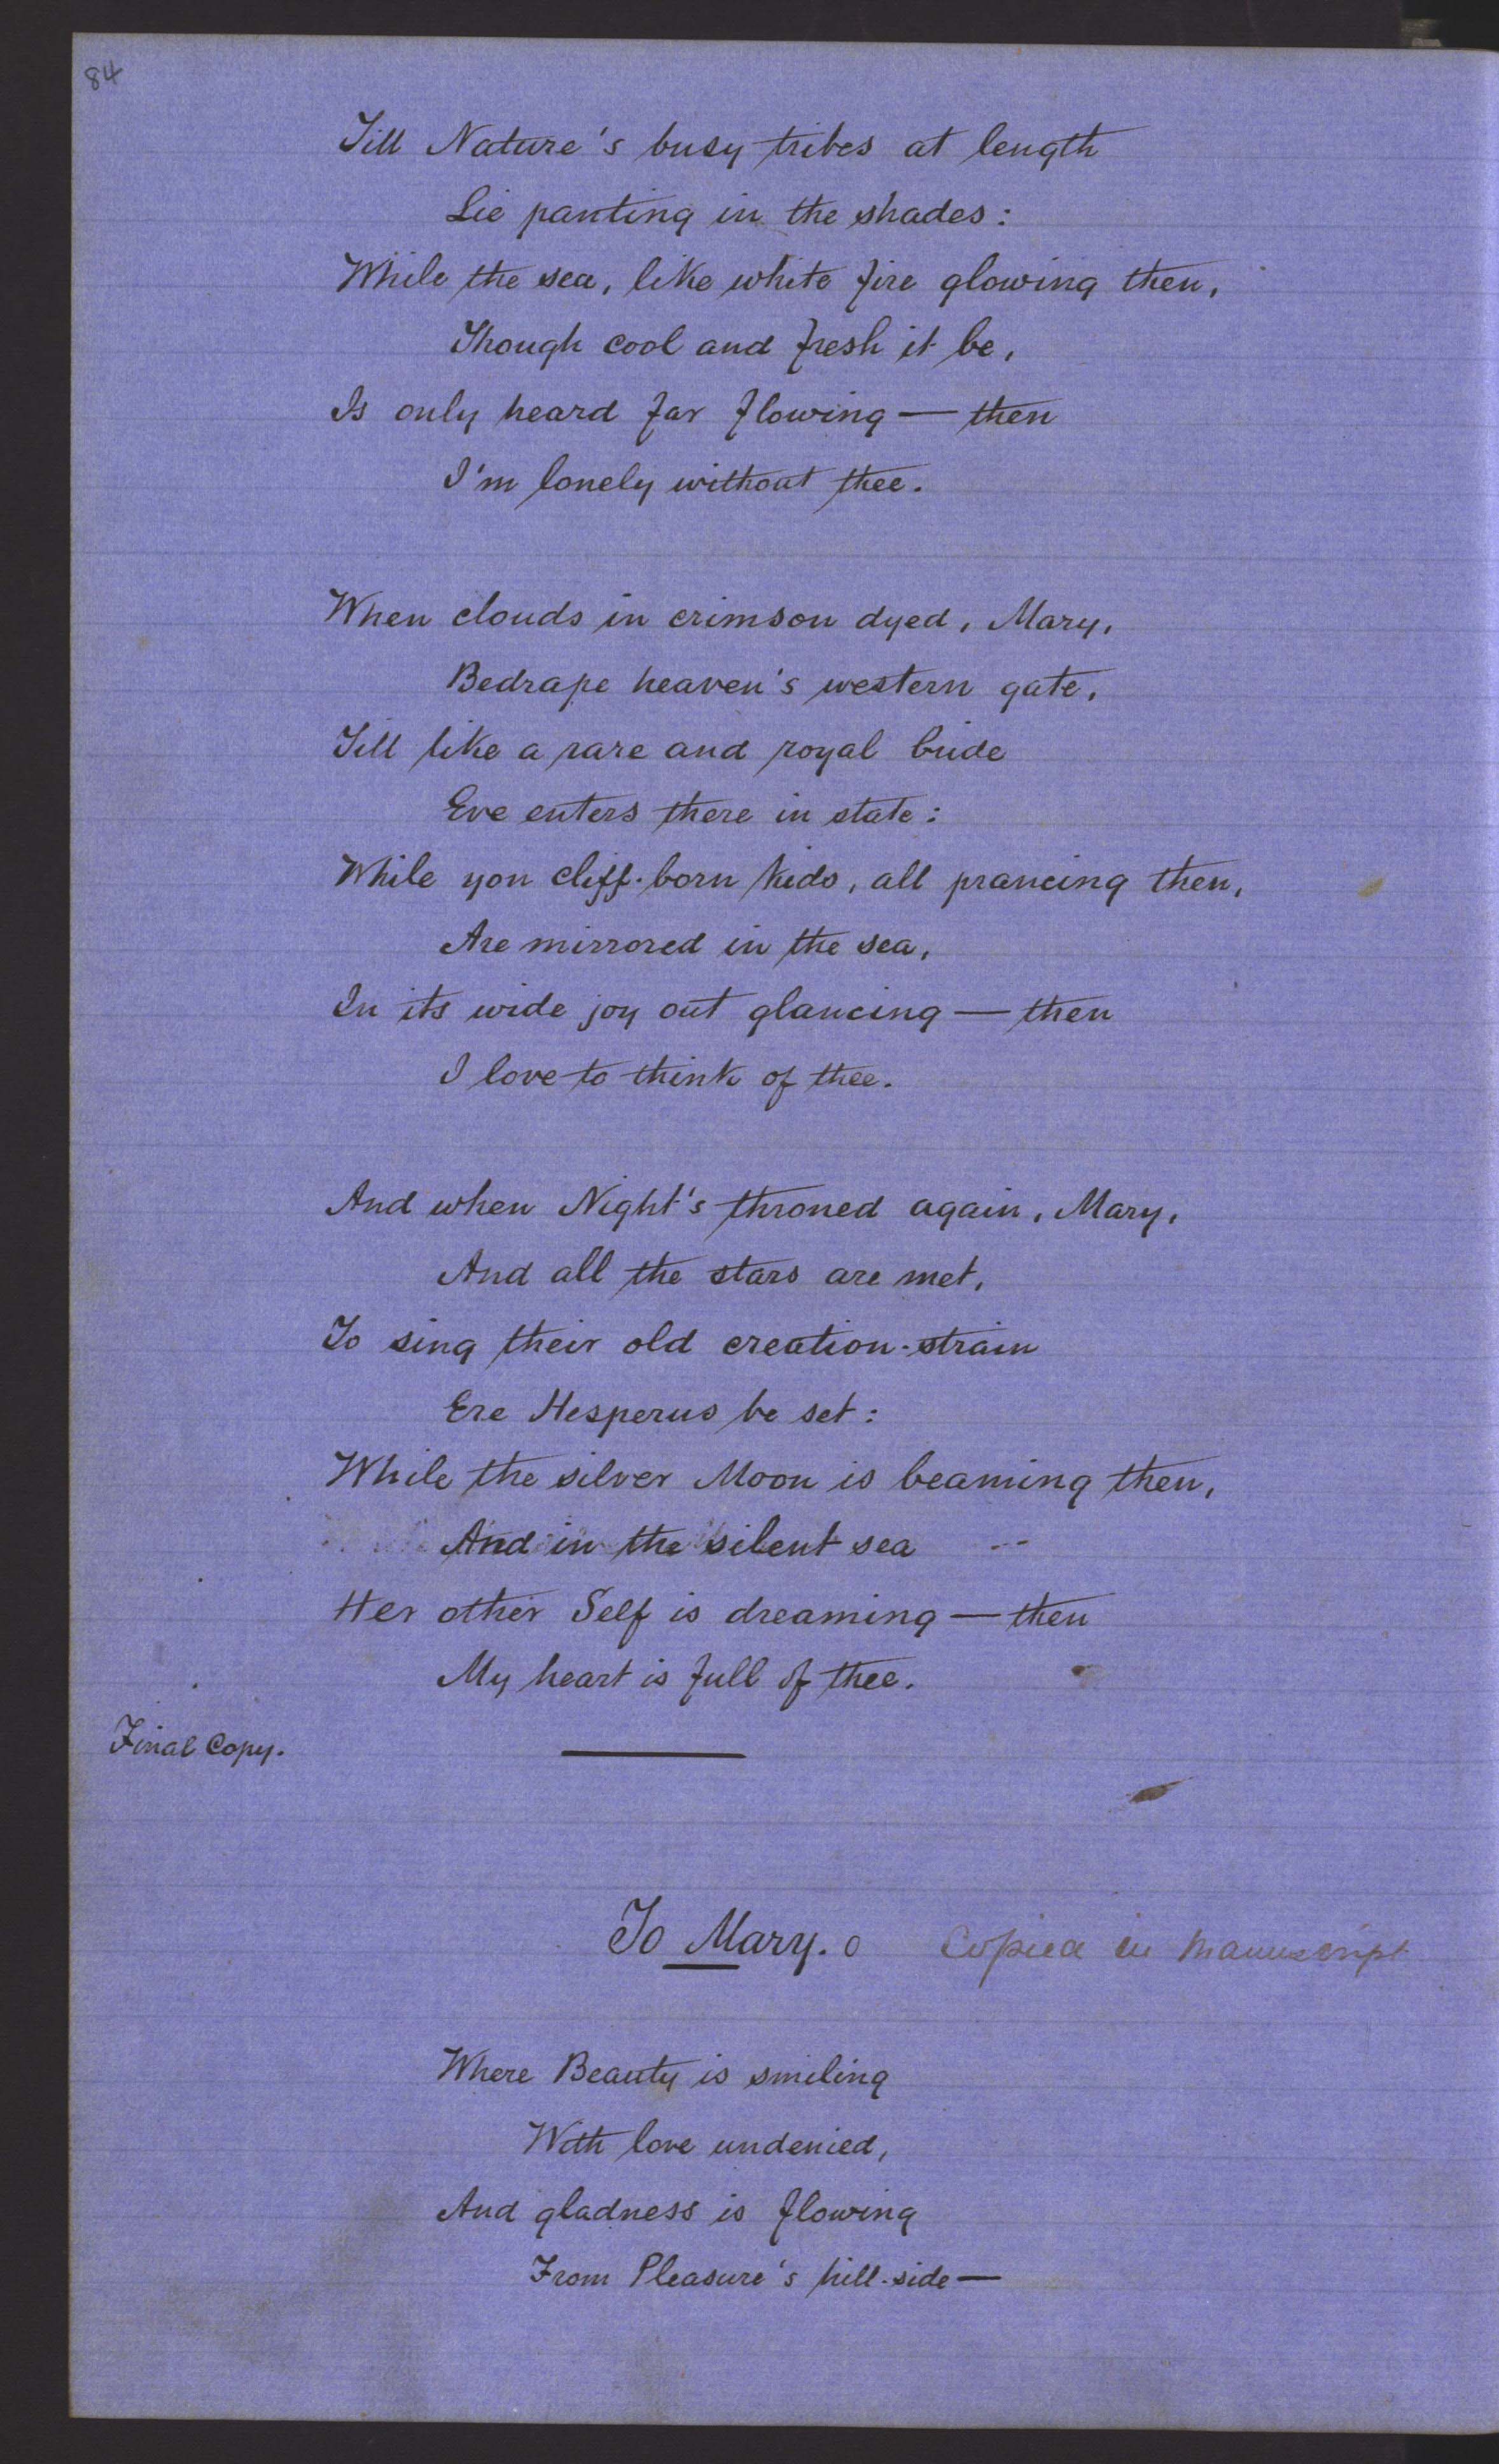 84
Till Nature's busy tribes at length
Lie panting in the shades:
While the sea, like white fire glowing then,
Though cool and fresh it be,
Is only heard far flowing — then
I'm lonely without thee.
When clouds in crimson dyed, Mary,
Bedrape heaven's western gate,
Till like a rare and royal bride
Eve enters there in state:
While yon cliff-born kids, all prancing then,
Are mirrored in the sea,
In its wide joy out glancing — then
I love to think of thee.
And when Night's throned again, Mary,
And all the stars are met,
To sing their old creation-strain
Ere Hesperus be set:
While the silver Moon is beaming then,
And in the silent sea
Her other Self is dreaming — then
My heart is full of thee.
Final Copy.
To Mary. o Copied in Manuscript
Where Beauty is smiling
With love undenied,
And gladness is flowing
From Pleasure's hill-side —